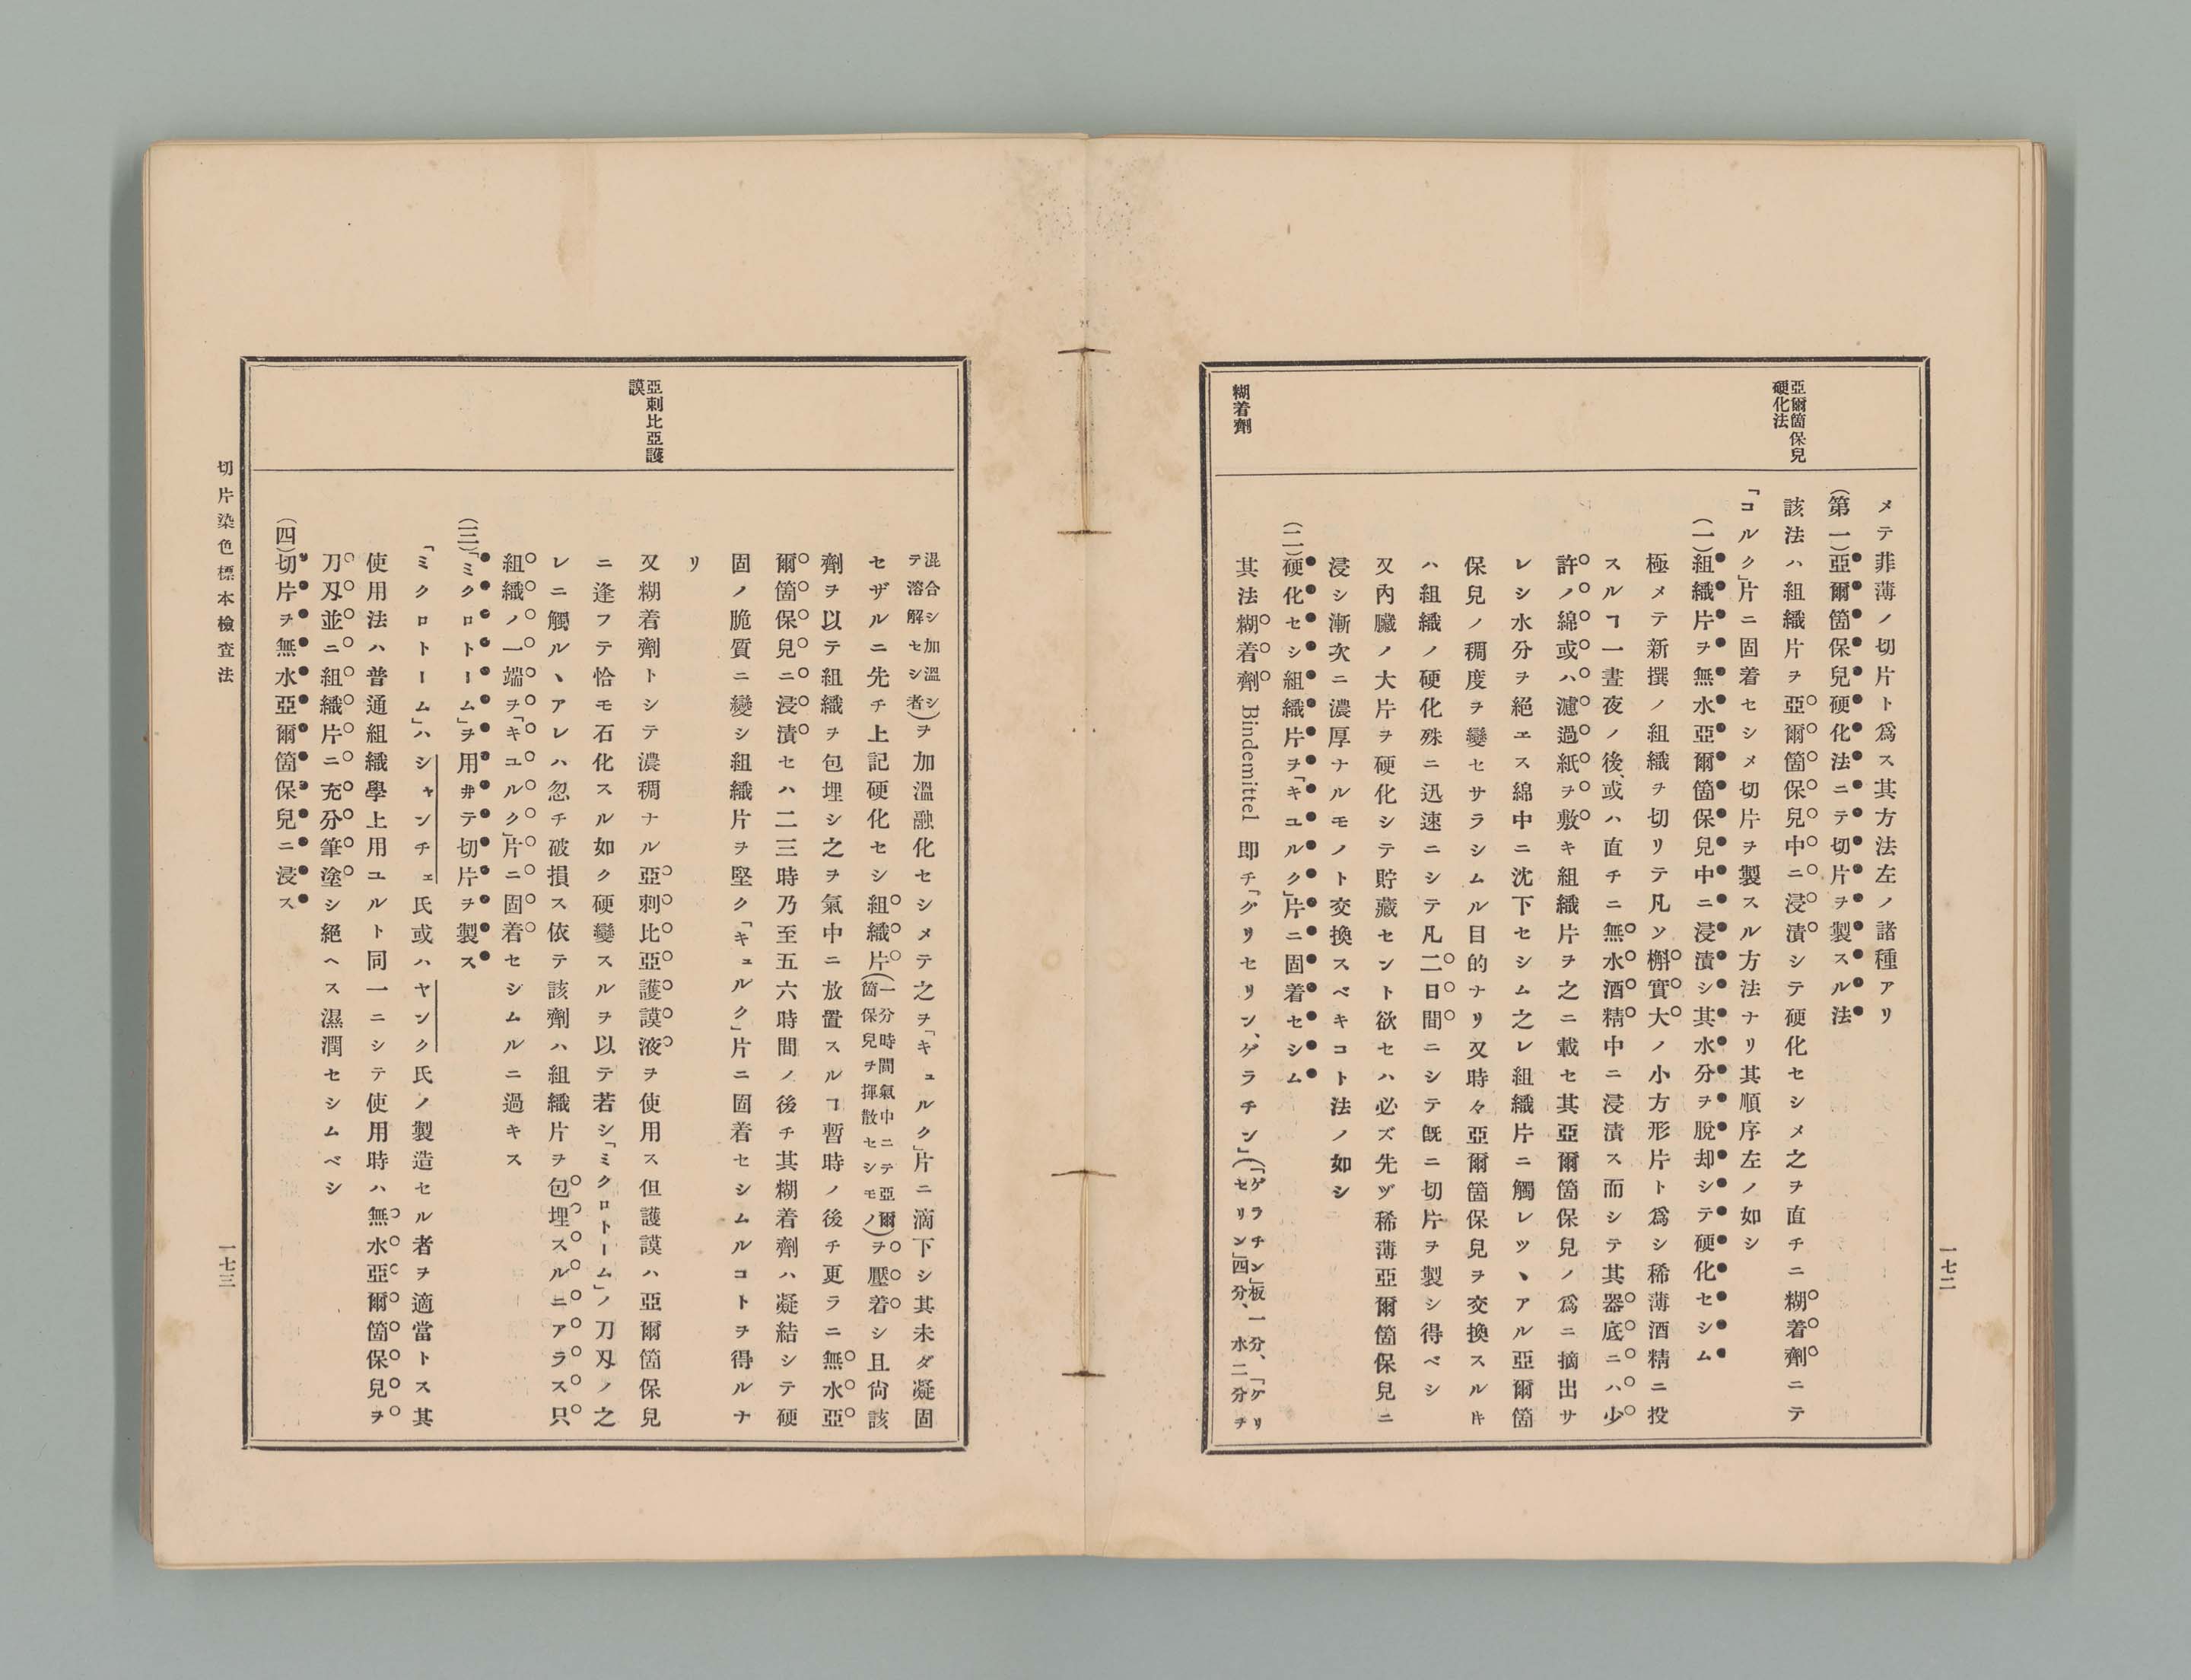 一七二
亞爾箇保兒
硬化法
糊着劑
メテ菲薄ノ切片ト爲ス其方法左ノ諸種アリ
(第一)亞爾箇保兒硬化法ニテ切片ヲ製スル法
該法ハ組織片ヲ亞爾箇保兒中ニ浸漬シテ硬化セシメ之ヲ直チニ糊着劑ニテ
「コルク」片ニ固着セシメ切片ヲ製スル方法ナリ其順序左ノ如シ
(一)組織片ヲ無水亞爾箇保兒中ニ浸漬シ其水分ヲ脫却シテ硬化セシム
極メテ新撰ノ組織ヲ切リテ凡ソ槲實大ノ小方形片ト爲シ稀薄酒精ニ投
スルヿ一晝夜ノ後、或ハ直チニ無水酒精中ニ浸漬ス而シテ其器底ニハ少
許ノ綿或ハ濾過紙ヲ敷キ組織片ヲ之ニ載セ其亞爾箇保兒ノ爲ニ摘出サ
レシ水分ヲ絕エス綿中ニ沈下セシム之レ組織片ニ觸レツヽアル亞爾箇
保兒ノ稠度ヲ變セサラシムル目的ナリ又時々亞爾箇保兒ヲ交換スルㇳキ
ハ組織ノ硬化殊ニ迅速ニシテ凡二日間ニシテ旣ニ切片ヲ製シ得ベシ
又內臟ノ大片ヲ硬化シテ貯藏セント欲セハ必ズ先ヅ稀薄亞爾箇保兒ニ
浸シ漸次ニ濃厚ナルモノト交換スベキコト法ノ如シ
(二)硬化セシ組織片ヲ「キユルク」片ニ固着セシム
其法糊着劑 Bindemittel 卽チ「グリセリン、ゲラチン」(「ゲラチン」板一分、「グリセリン」四分、水二分ヲ
亞刺比亞護
謨
混合シ加溫シテ溶解セシ者)ヲ加溫融化セシメテ之ヲ「キュルク」片ニ滴下シ其未ダ凝固
セザルニ先チ上記硬化セシ組織片(一分時間氣中ニテ亞爾箇保兒ヲ揮散セシモノ)ヲ壓着シ且尙該
劑ヲ以テ組織ヲ包埋シ之ヲ氣中ニ放置スルヿ暫時ノ後チ更ラニ無水亞
爾箇保兒ニ浸漬セハ二三時乃至五六時間ノ後チ其糊着劑ハ凝結シテ硬
固ノ脆質ニ變シ組織片ヲ堅ク「キュルク」片ニ固着セシムルコトヲ得ルナ
リ
又糊着劑トシテ濃稠ナル亞刺比亞護謨液ヲ使用ス但護謨ハ亞爾箇保兒
ニ逢フテ恰モ石化スル如ク硬變スルヲ以テ若シ「ミクロトーム」ノ刀刄ノ之
レニ觸ルヽアレハ忽チ破損ス依テ該劑ハ組織片ヲ包埋スルニアラス只
組織ノ一端ヲ「キユルク」片ニ固着セシムルニ過キス
(三)「ミクロトーム」ヲ用井テ切片ヲ製ス
「ミクロトーム」ハシャンチェ氏或ハヤンク氏ノ製造セル者ヲ適當トス其
使用法ハ普通組織學上用ユルト同一ニシテ使用時ハ無水亞爾箇保兒ヲ
刀刄並ニ組織片ニ充分筆塗シ絕ヘス濕潤セシムベシ
(四)切片ヲ無水亞爾箇保兒ニ浸ス
切片染色標本檢查法
一七三